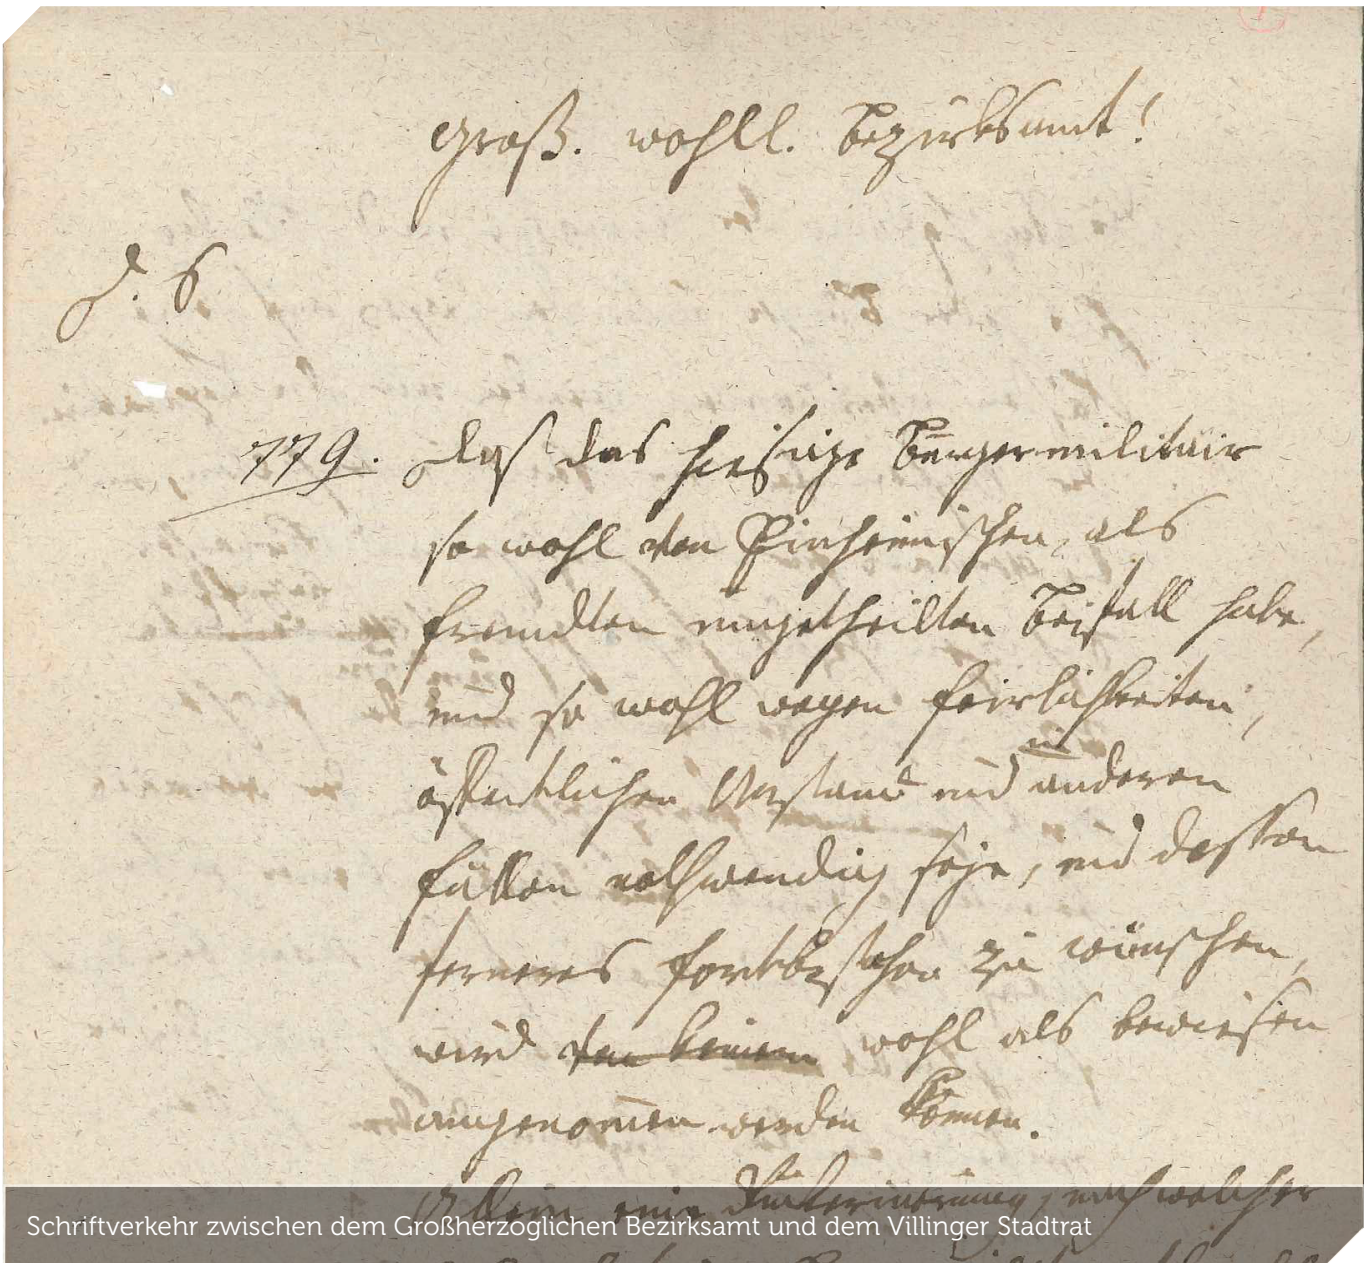 Groß. wohll. Bezirksamt!
d. 6
779. Daß das hiesige Bürgermilitair
so wohl den Einheimischen, als
Fremdten ungetheilten Beifall habe,
und so wohl wegen Feirlichkeiten,
öffentlichen Vorstand und in anderen
Fällen nothwendig seye, und dessen
ferneres Fortbestehen zu wünschen,
wird von keinem wohl als bewiesen
angenomen werden können.
Allein eine Rückerinnerung, nach welcher
Schriftverkehr zwischen dem Großherzoglichen Bezirksamt und dem Villinger Stadtrat